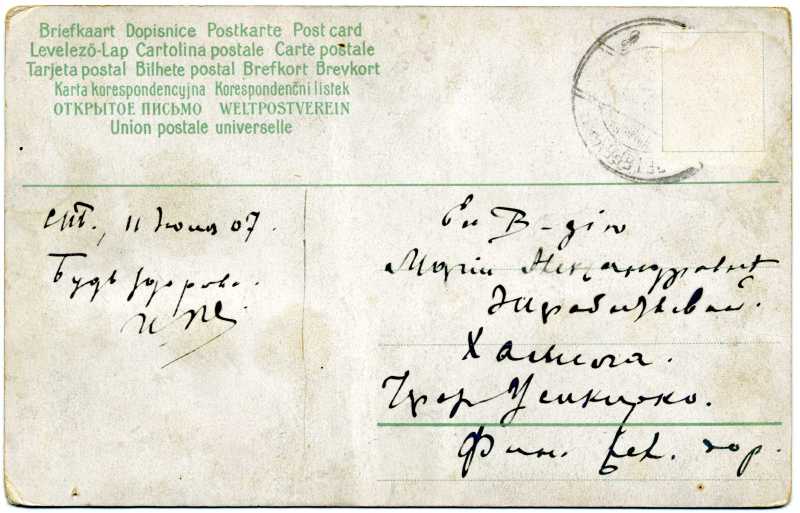 Briefkaart Dopisnice Postkarte Post card
Levelező-Lap Cartolina postale Carte postale
Tarjeta postal Bilhete postal Brefkort Brevkort
Karta korespondencyjna Korespondenční listek
ОТКРЫТОЕ ПИСЬМО WELTPOSTVEREIN
Union postale universelle
СПБ., 11 Июня 07.
Будь здорова.
Ея В-дію
Маріи Александровнѣ
Халила.
Чрез Усикирко.
Фин. жел. дор.